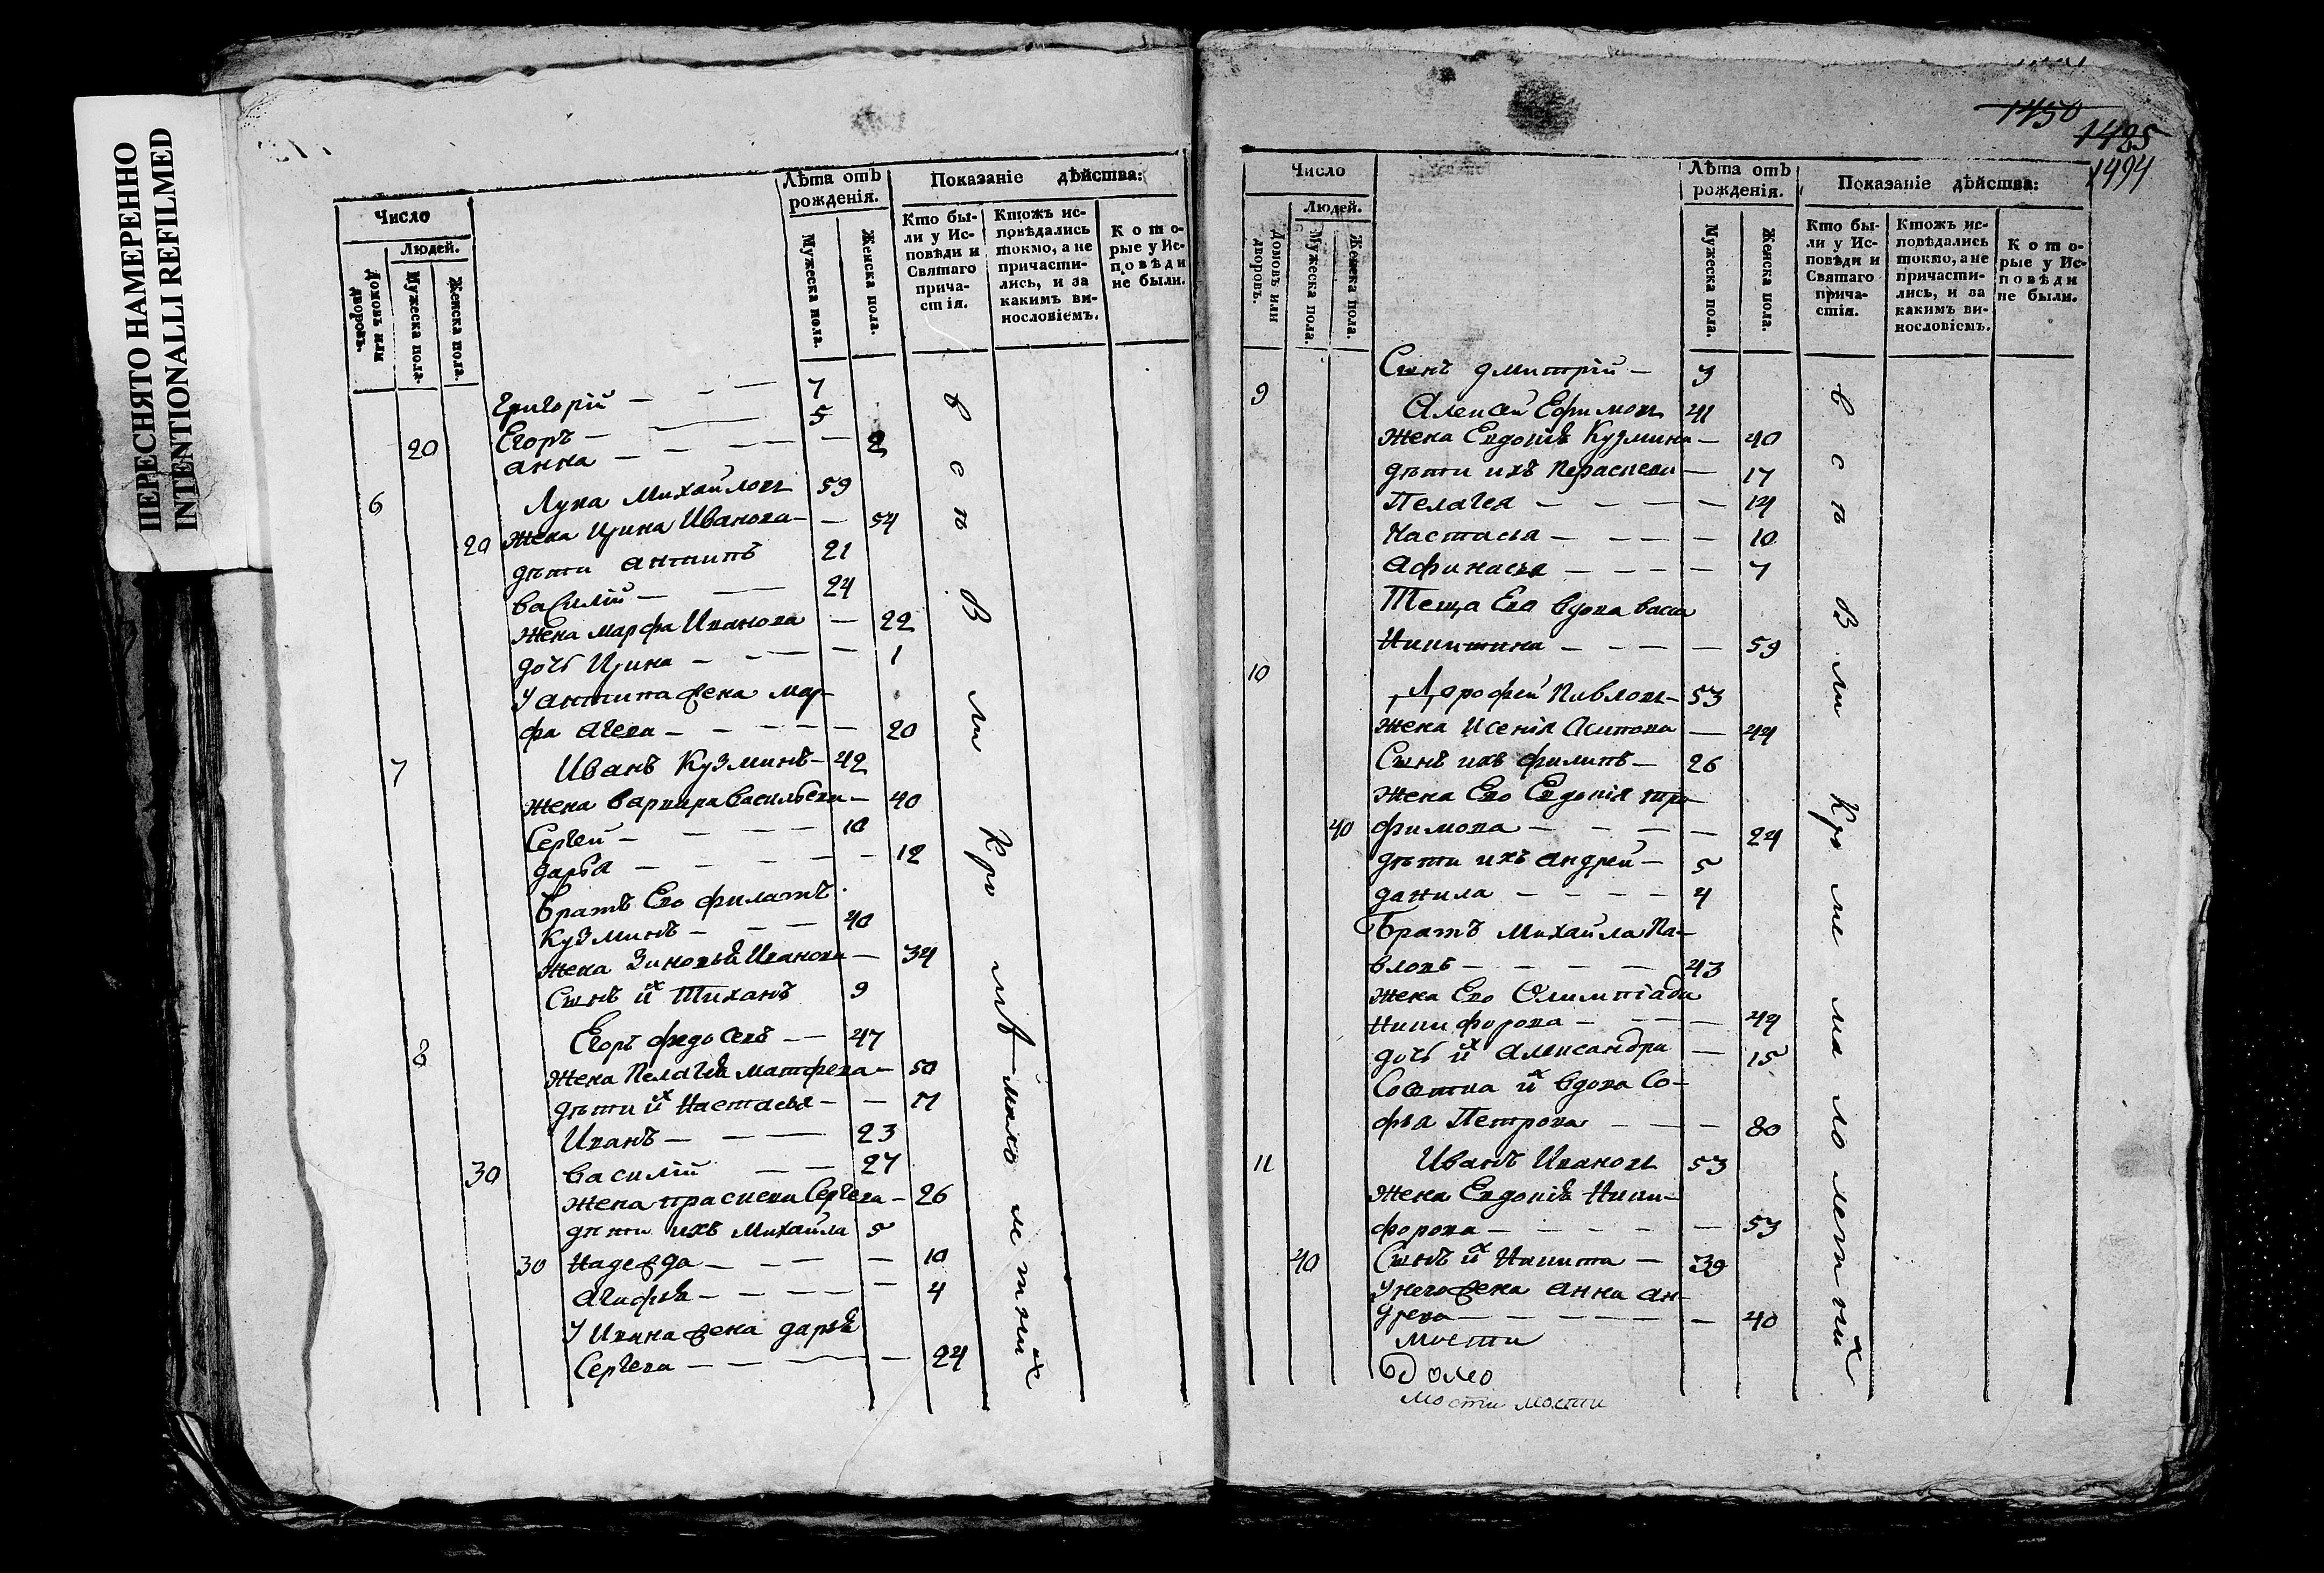 ПЕРЕСНЯТО НАМЕРЕННО
INTENTIONALLI REFILMED
Число
Людей.
Домовъ или дворовъ.
Мужеска пола.
Женска пола.
Лѣта отъ рожденія.
Мужеска пола.
Женска пола.
Показаніе дѣйства:
Кто были у Исповѣди и Святаго причастія.
Ктожъ исповѣдались токмо, а не причастились, и за какимъ винословіемъ.
Которые у Исповѣди не были.
Григорій — — — 7
Егоръ — — — 5
20 анна — — — — 2
6 Лука Михайловъ 59
20 жена Ирина Иванова — — 54
дѣти антипъ 21
василій — — 24
жена марфа Иванова — 22
дочь Ирина — — — — 1
У антипа жена мар-
фа агеева — — — — 20
7 Иванъ Кузминъ — 42
жена варвара васильева — 40
Сергей — — — — 10
дарья — — — — — 12
братъ Ево филатъ
Кузминъ — — — 40
жена Зиновья Иванова — 34
Сынъ их Тиханъ 9
8 Егоръ федосеевъ — — 47
жена Пелагея матфеева — 50
дѣти их Настасья — — 17
Иванъ — — — 23
30 василій — — 27
жена праскева Сергеева — 26
дѣти ихъ Михайла 5
30 Надежда — — — — 10
агафья — — — — 4
У Ивана жена дарья
Сергеева — — — — 24
всѣ были кромѣ малолетныхъ
1450
1485
1494
Число
Людей.
Домовъ или дворовъ.
Мужеска пола.
Женска пола.
Лѣта отъ рожденія.
Мужеска пола.
Женска пола.
Показаніе дѣйства:
Кто были у Исповѣди и Святаго причастія.
Ктожъ исповѣдались токмо, а не причастились, и за какимъ винословіемъ.
Которые у Исповѣди не были.
Сынъ дмитрій — 3
9 Алексей Ефимовъ 41
жена Евдокія Кузмина — 40
дѣти ихъ Параскева — 17
Пелагея — — — — 14
Настасья — — — — 10
афинасья — — — — 7
Теща Ево вдова васса
Никитина — — — — 59
10 Дорофей Павловъ — 53
жена Ксенія Осипова — 44
Сынъ ихъ филипъ — 26
жена Ево Евдокія тро-
40 фимова — — — — 24
дѣти ихъ андрей — 5
данила — — — — 4
Братъ михайла Па-
вловъ — — — — 43
жена Ево Олимпіада
Никифорова — — — — 44
дочь их александра — 15
вдова Со-
фья Петрова — — — 80
11 Иванъ Ивановъ 53
жена Евдокія Ники-
форова — — — — — 53
40 Сынъ их Никита — 39
У него жена анна ан-
дреева — — — — — 40
мости
мости мости